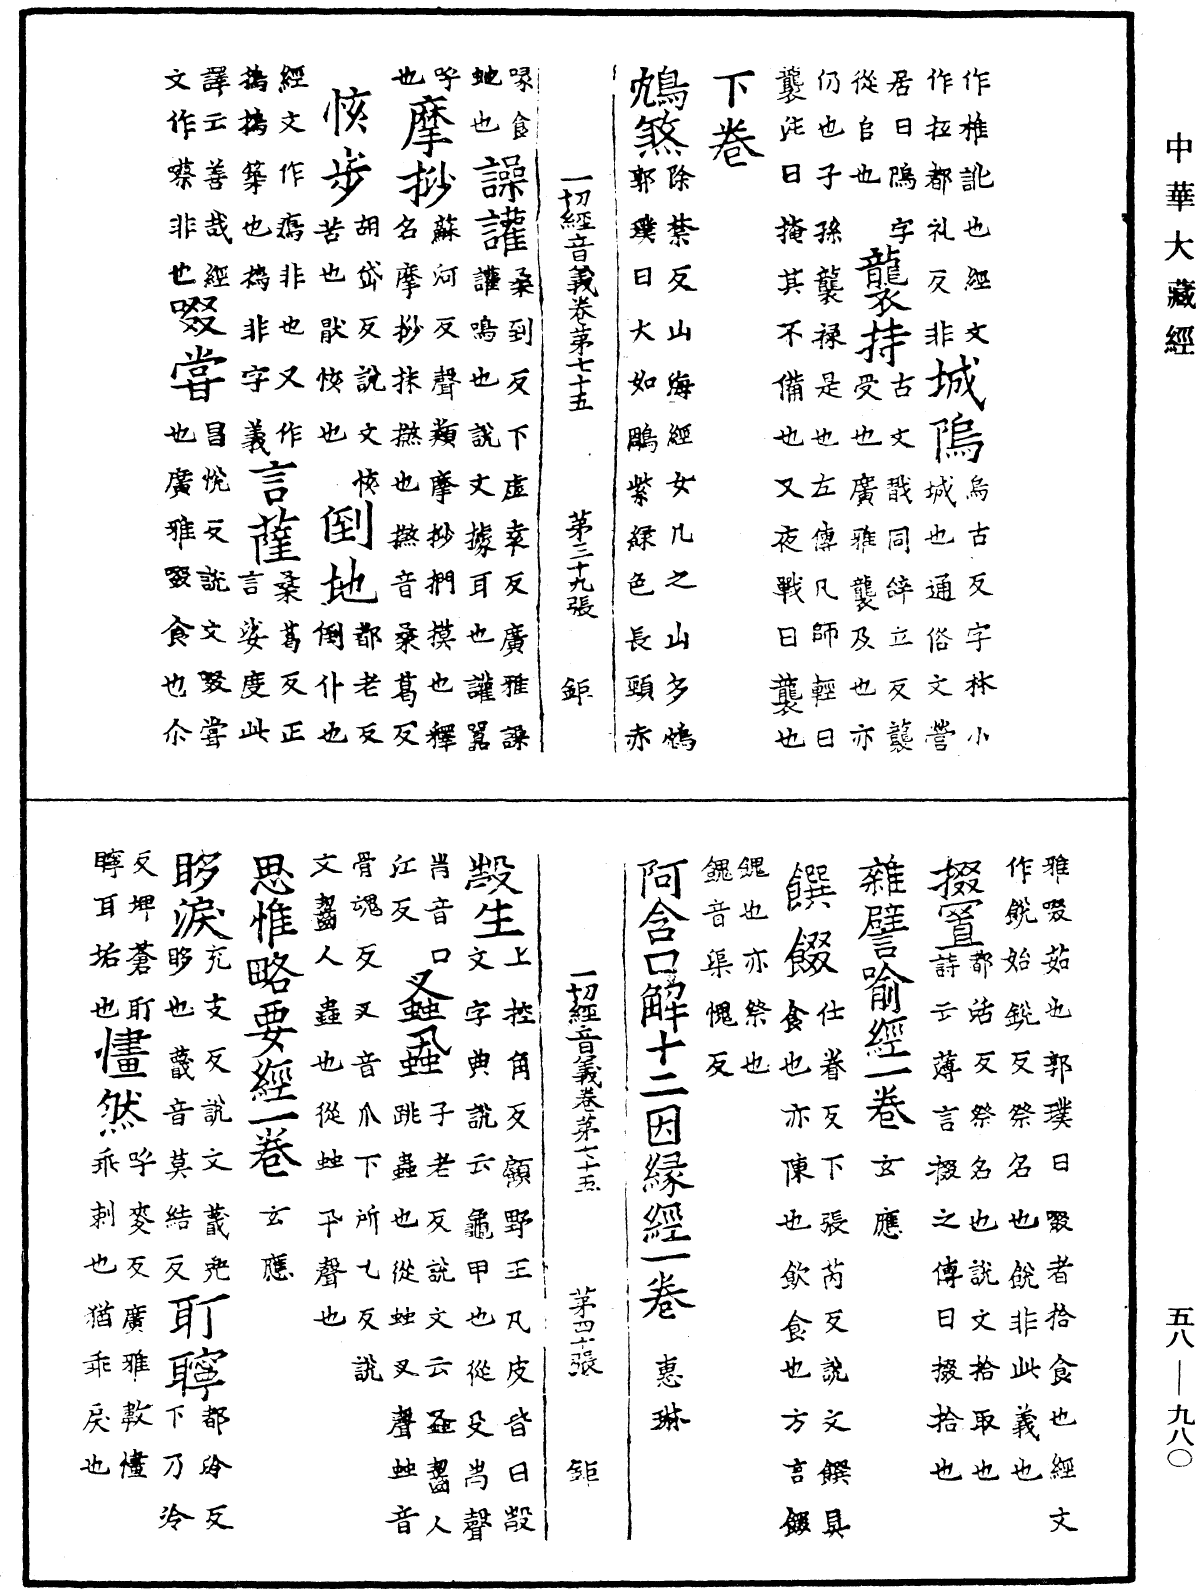 中華大藏經
作椎訛也經文
作柆都礼反非城隖烏古反字林小
居曰隖字城也通俗文營
從𠂤也龍衣持古文戠同辝立反襲
受也廣雅襲及也亦
仍也子孫襲祿是也左傳凡師輕曰
襲注曰掩其不備也又夜戰曰襲也
下卷
鴆煞除禁反山海經女几之山多鴆
郭璞曰大如鵰紫綠色長頸赤
一切經音義卷第七十五 第三十九張 鉅
喙食
虵也譟讙桑到反下虛袁反廣雅譟
讙鳴也說文擾耳也讙嚣
呼
也摩抄蘇河反聲類摩抄捫摸也釋
名摩抄抹摋也摋音桑葛反
㤥步胡岱反說文㤥
苦也猒㤥也倒地都老反
倒仆也
經文作㿒非也又作
擣擣築也擣非字義言薩桑葛反正
言娑度此
譯云善哉經
文作蔡非也啜嘗昌悅反說文啜嘗
也廣雅啜食也尒
雅啜茹也郭璞曰啜者拾食也經文
作餟始銳反祭名也餟非此義也
掇置都活反祭名也說文拾取也
詩云薄言掇之傳曰掇拾也
雜譬喻經一卷 玄應
饌餟仕眷反下張芮反說文饌具
食也亦陳也飲食也方言餟
餽也亦祭也
餽音渠愧反
阿含口解十二因緣經一卷 惠琳
一切經音義卷第七十五 第四十張 鉅
㲉生上控角反顧野王凡皮皆曰㲉
文字典說云龜甲也從殳𡴑聲
𡴑音口
江反 蚤蝨子老反說文云蚤齧人
跳蟲也從䖵叉聲䖵音
骨魂反叉音爪下所乙反說
文齧人蟲也從䖵卂聲也
思惟略要經一卷 玄應
眵淚充支反說文䁾兠
眵也䁾音莫結反耵聹都冷反
下乃冷
反埤蒼耵
聹耳垢也㦎然呼麥反廣雅敫㦎
乖剌也猶乖戾也
五八—九八〇